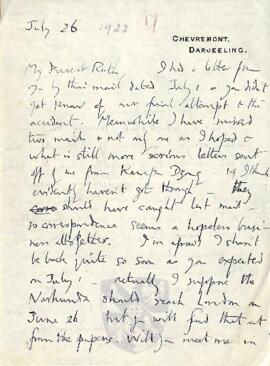 July 26 1922 17
CHEVREMONT,
DARJEELING.
My dearest Ruth I had a letter from
you by this mail dated July 1 & you didn't
yet hear of our final attempt & the
accident. Meanwhile I have missed
two mails & not only as I hoped &
what is still more serious letters sent
off by me from Kampa Dzong I think
evidently haven't got through - they
should have caught last mail -
so correspondence seems a hopeless busi-
ness altogether. I'm afraid I shan't
be back quite so soon as you expected
on July 1 - actually I suppose the
Narkunda should reach London on
June 26 but you will find that out
from the papers. Will you meet me in